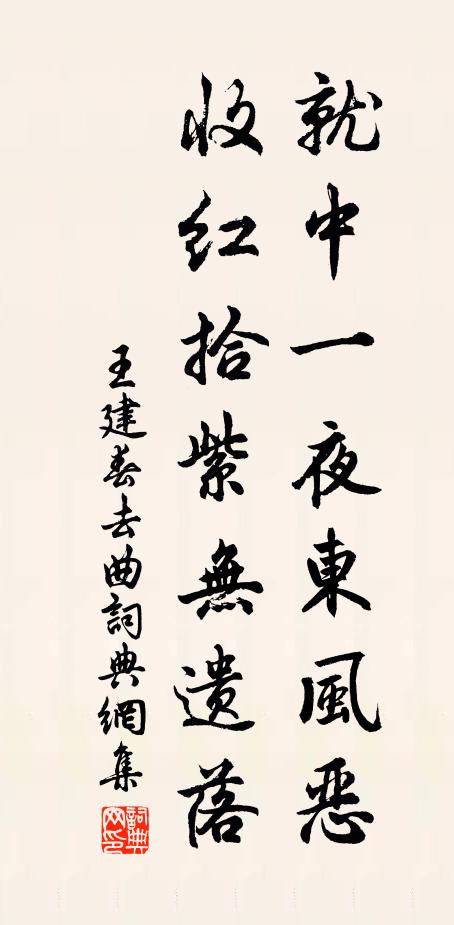 就中一夜東風惡
收紅拾紫無遺落
王建春去曲詞典網集
詞典网印